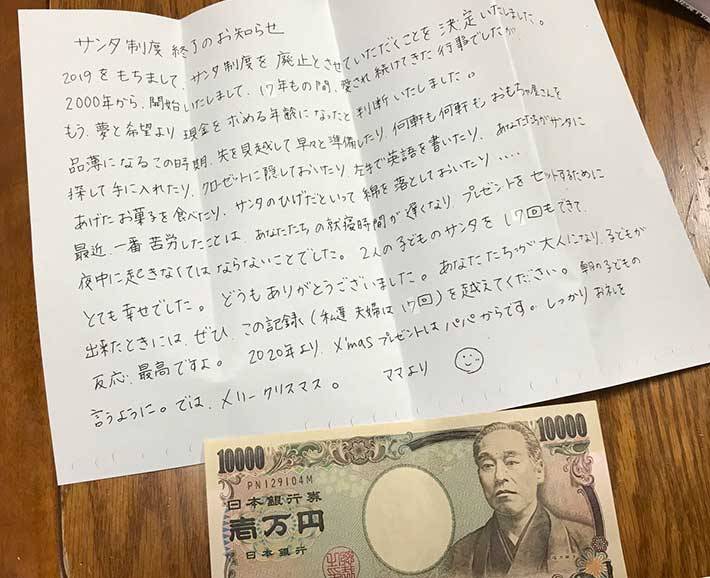 サンタ制度 終了のお知らせ
2019をもちまして、サンタ制度を廃止とさせていただくことを決定いたしました。
2000年から、開始いたしまして、17年もの間、愛され続けてきた行事でしたが
もう、夢と希望より現金を求める年齢になったと判断いたしました。
品薄になるこの時期、先を見越して早々と準備したり、何軒も何軒もおもちゃ屋さんを
探して手に入れたり、クローゼットに隠しておいたり、左手で英語を書いたり、あなた方がサンタに
あげたお菓子を食べたり、サンタのひげだといって綿を落としておいたり....
最近、一番苦労したことは、あなたたちの就寝時間が遅くなり、プレゼントをセットするために
夜中に起きなくてはならないことでした。2人の子どものサンタを17回もできて、
とても幸せでした。どうもありがとうございました。あなたたちが大人になり、子どもが
出来たときには、ぜひ、この記録(私達夫婦は17回)を越えてください。朝の子どもの
反応、最高ですよ。 2020年より、X'masプレゼントはパパからです。しっかりお礼を
言うように。では、メリークリスマス。 ママより
10000
10000
PN129104M
日本銀行券
壱万円
日本銀行